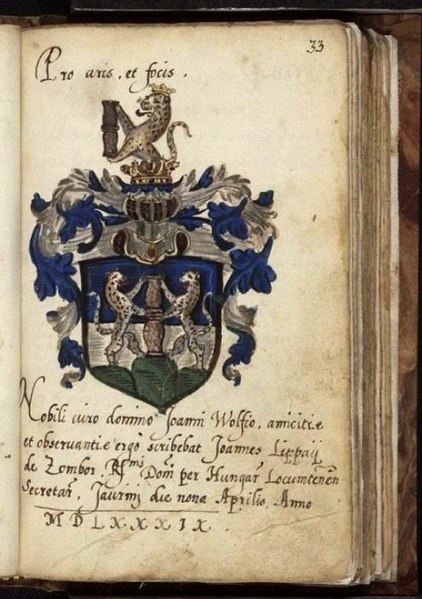 33
Pro aris, et focis.
Nobili viro domino Joanni Wolfio, amicitiæ
et observantiæ ergo scribebat Joannes Lippaÿ
de Zombor, Rssmi Domi per Hungar Locumtenen
Secretar, Jaurini die nona Aprilis, Anno
MDLXXXIX.